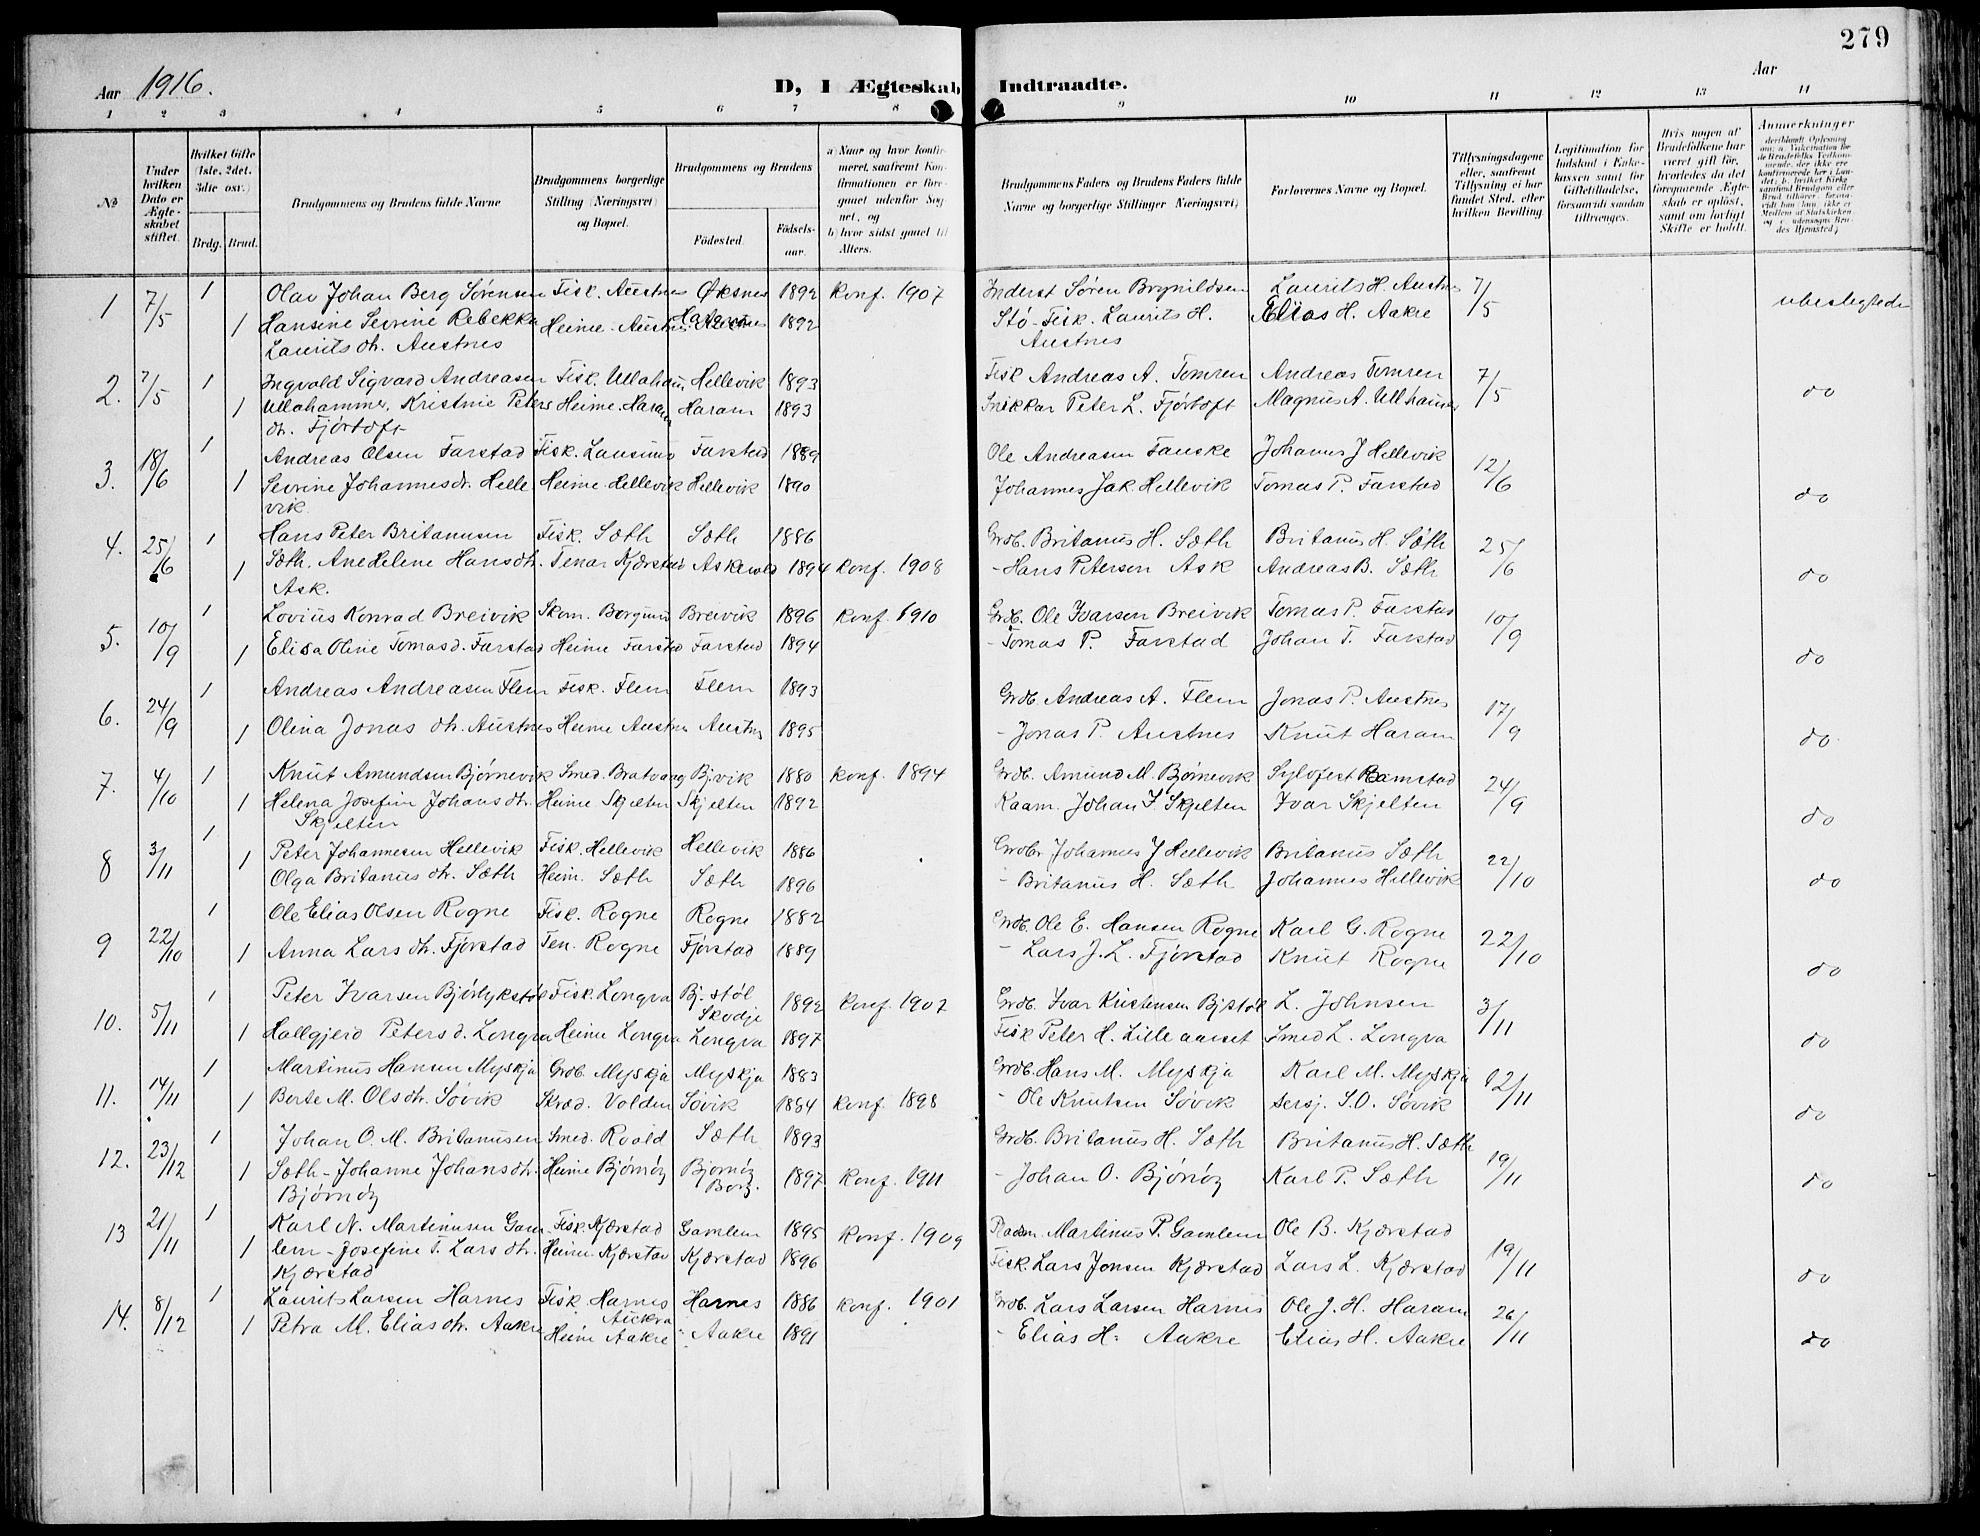 279
Aar 1916.
D, 1 Ægteskab Indtraadte.
Aar
1 2 3 4 5 6 7 8 9 10 11 12 13 14
№
Under hvilken Dato er Ægteskabet stiftet.
Hvilket Gifte (1ste, 2det, 3die osv.)
Brdg. Brud.
Brudgommens og Brudens fulde Navne
Brudgommens borgerlige Stilling (Næringsvei) og Bopæl.
Brudgommens og Brudens
Fødested.
Fødselsaar.
a) Naar og hvor konfirmeret, saafremt Konfirmationen er foregaaet udenfor Sognet, og
b) hvor sidst gaaet til Alters.
Brudgommens Faders og Brudens Faders fulde Navne og borgerlige Stillinger (Næringsvei)
Forlovernes Navne og Bopæl.
Tillysningsdagene eller, saafremt Tillysning ei har fundet Sted, efter hvilken Bevilling.
Legitimation for Indskud i Enkekassen samt for Giftetilladelse, forsaavidt saadan tiltrænges.
Hvis nogen af Brudefolkene har været gift før, hvorledes da det foregaaende Ægteskab er opløst, samt om lovligt Skifte er holdt.
Anmerkninger
1 7/5 1 Olav Johan Berg Sørensen Fisk. Austnes Øksnes 1892 Konf. 1907 Inderst Søren Brynildsen Laurits H. Austnes 7/5 ubeslegtede
1 Hansine Sevrine Rebekka Heime Austnes Haram 1892 Stø-Fisk. Laurits H. Elias H. Aakre
Laurits dt. Austnes Austnes
2. 7/5 1 Ingvald Sigvard Andreasen Fisk. Ullaham. Hellevik 1893 Fisk Andreas A. Tomren Andreas Tomren 7/5 do
1 Ullahammer, Kristine Peters Heime. Haram Haram 1893 Snikkar Peter L. Fjørtoft Magnus A. Ullhammer
dt. Fjørtoft
3. 18/6 1 Andreas Olsen Farstad Fisk. Farstad 1889 Ole Andreasen Fauske Johannes J Hellevik 12/6
1 Sevrine Johannesdt. Helle Heime. Hellevik Hellevik 1890 Johannes Jak. Hellevik Tomas P. Farstad do
vik
4. 25/6 1 Hans Peter Britanusen Fisk. Sæth Sæth 1886 Grdb. Britanus H. Sæth Britanus H. Sæth 25/6
1 Sæth. Ane Heline Hansdt. Tenar Kjærstad Askevold 1894 Konf. 1908 - Hans Petersen Ask Andreas B. Sæth do
Ask.
5. 10/9 1 Lovius Konrad Breivik Skom. Borgund Breivik 1896 Konf. 1910 Grdb. Ole Ivarsen Breivik Tomas P. Farstad 10/9
1 Elisa Oline Tomasd. Farstad Heime Farstad Farstad 1894 - Tomas P. Farstad Johan T. Farstad do
6. 24/9 1 Andreas Andreasen Flem Fisk. Flem Flem 1893 Grdb. Andreas A. Flem Jonas P. Austnes 17/9
1 Olina Jonas dt. Austnes Heime Austnes Austnes 1895 - Jonas P. Austnes Knut Haram do
7. 4/10 1 Knut Amundsen Bjørnevik Smed. Bratvaag Bj.vik 1880 Konf. 1894 Grdb. Amund M. Bjørnevik Sylvfest Ramstad 24/9
1 Helena Josefine Johans dt. Heime Skjelten Skjelten 1892 Kaarm. Johan I. Skjelten Ivar Skjelten do
Skjelten
8 3/11 1 Peter Johannesen Hellevik Fisk. Hellevik Hellevik 1886 Grdbr Johannes J Hellevik Britanus Sæth 22/10
1 Olga Britanus dt. Sæth Heim. Sæth Sæth 1896 - Britanus H. Sæth Johannes Hellevik do
9 22/10 1 Ole Elias Olsen Rogne Fisk. Rogne Rogne 1882 Grdb. Ole E. Hansen Rogne Karl G. Rogne 22/10
1 Anna Lars dt. Fjørstad Ten. Rogne Fjørstad 1889 - Lars J. L. Fjørstad Knut Rogne do
10. 5/11 1 Peter Ivarsen Bjørlykstøl Fisk. Longva Bj. støl Skodje 1892 Konf. 1907 Grdb. Ivar Kristensen Bj.støl L. Johnsen 3/11
1 Hallgjerd Peters d. Longva Heime Longva Longva 1897 Fisk Peter H. Lilleaaset Smed L. Longva do
11. 14/11 1 Martinus Hansen Myskja Grdb. Myskja Myskja 1883 Grdb. Hans M. Myskja Karl M. Myskja 12/11
1 Berte M. Olsdt. Søvik Skræd. Volden Søvik 1884 Konf. 1898 - Ole Knutsen Søvik Sersj. S.O. Søvik do
12. 23/12 1 Johan O. M. Britanusen Smed. Roald Sæth 1893 Grdb. Britanus H. Sæth Britanus H. Sæth 19/11
1 Sæth - Johanne Johansdt. Heime Bjørnøy Bjørnøy Borg. 1897 Konf. 1911 - Johan O. Bjørnøy Karl P. Sæth do
Bjørnøy
13 21/11 1 Karl N. Martinusen Gam- Fisk. Kjærstad Gamlem 1895 Konf. 1909 Pladsm. Martinus P. Gamlem Ole B. Kjærstad 19/11
1 lem - Josefine T. Lars dt. Heime Kjærstad Kjærstad 1896 Fisk. Lars Jonsen Kjærstad Lars L. Kjærstad do
Kjærstad
14. 8/12 1 Laurits Larsen Harnes Fisk. Harnes Aukra Harnes 1886 Konf. 1901 Grdb. Lars Larsen Harnes Ole J. H. Haram 26/11
1 Petra M. Elias dt. Aakre Heime Aakre Aakre 1891 - Elias H. Aakre Elias H. Aakre do